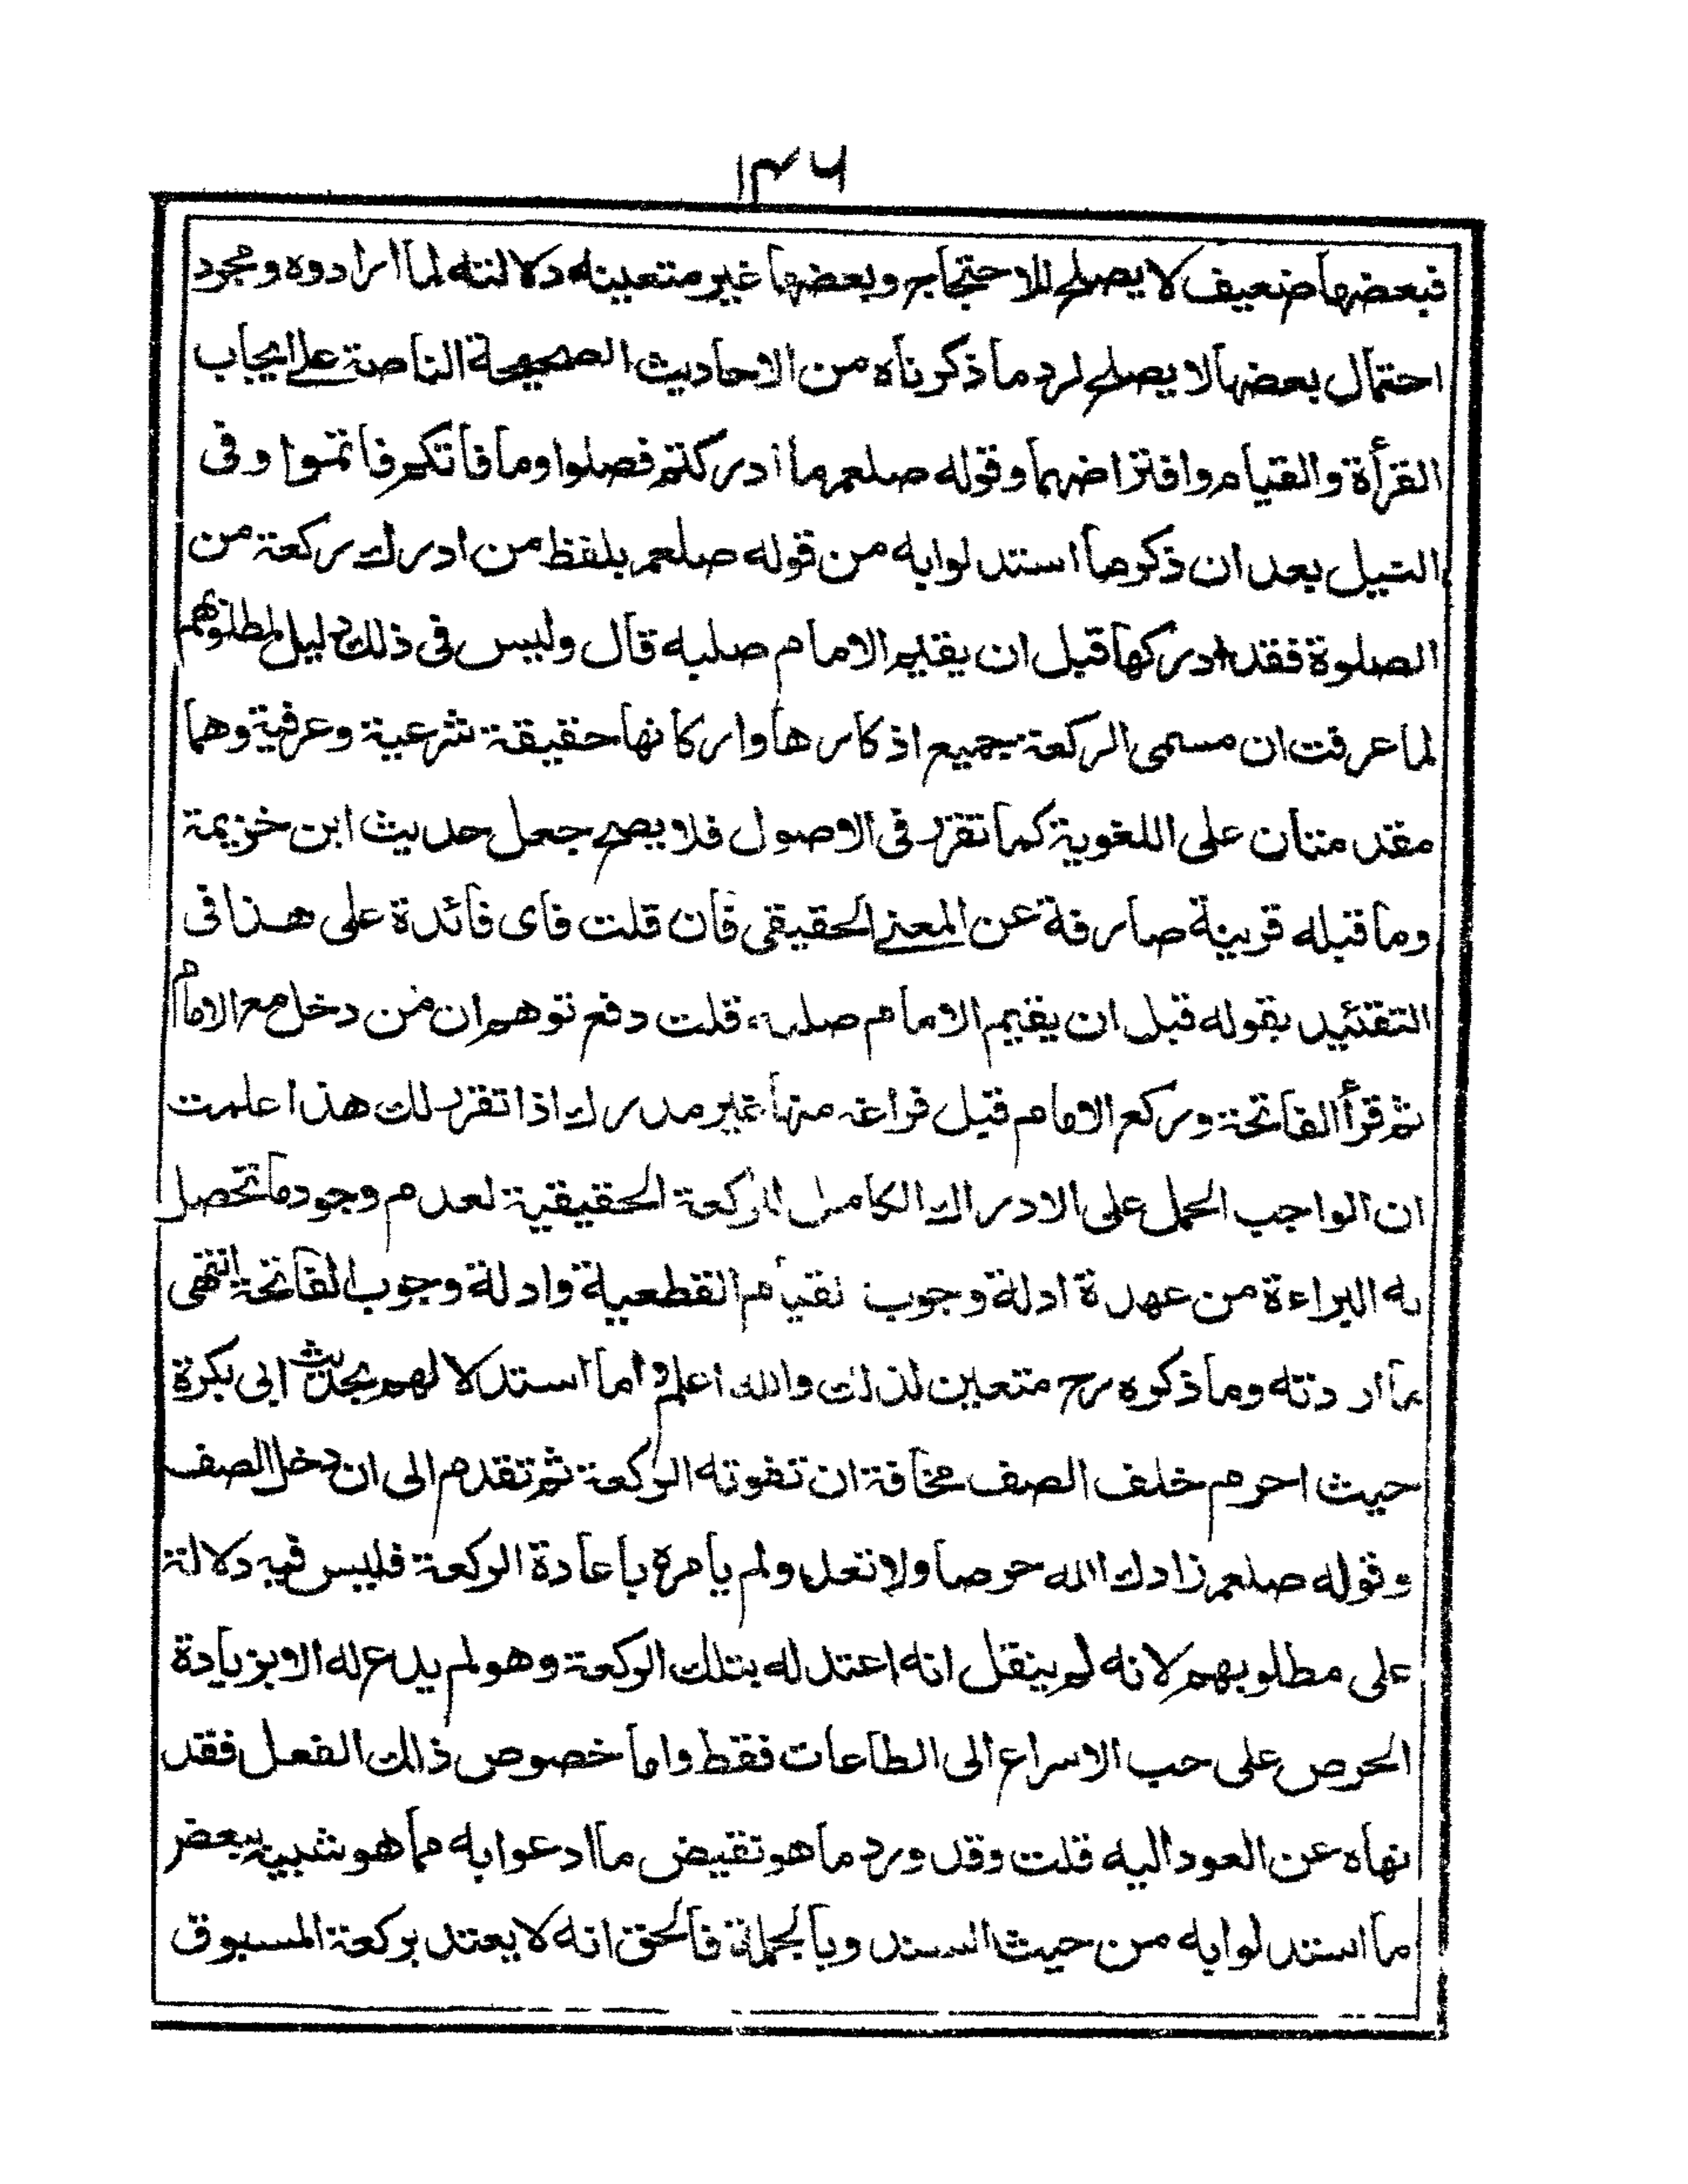 ١٣٦
فبعضها ضعيف لا يصلح للاحتجاج وبعضها غير متعينه دلالته لما ارادوه ومجرد
احتمال بعضها لا يصلح لرد ما ذكرناه من الاحاديث الصحيحة الناصة على ايجاب
القرأة والقيام وافتراضهما وقوله صلعم ما ادركتم فصلوا وما فاتكم فاتموا وفى
النيل بعد ان ذكر ما استدلوا به من قوله صلعم بلفظ من ادرك ركعة من
الصلوة فقد ادركها قبل ان يقيم الامام صلبه قال وليس فى ذلك دليل لمطلوبهم
لما عرفت ان مسمى الركعة جميع اذكارها واركانها حقيقة شرعية وعرفية وهما
مقدمتان على اللغوية كما تقرر فى الاصول فلا يصح جعل حديث ابن خزيمة
وما قبله قرينة صارفة عن المعنى الحقيقى فان قلت فاى فائدة على هذا فى
التقئيد بقوله قبل ان يقيم الامام صلبه قلت دفع توهم ان من دخل مع الامام
ثم قرأ الفاتحة وركع الامام قبل فراغه منها غير مدرك اذا تقرر لك هذا علمت
ان الواجب الحمل على الادراك الكامل للركعة الحقيقية لعدم وجود ما تحصل
به البراءة من عهدة ادلة وجوب القيام القطعية وادلة وجوب الفاتحة انتهى
ما اردته وما ذكره رح متعين لذلك والله اعلم واما استدلالهم بحديث ابى بكرة
حيث احرم خلف الصف مخافة ان تفوته الركعة ثم تقدم الى ان دخل الصف
وقوله صلعم زادك الله حرصا ولا تعد ولم يأمره باعادة الركعة فليس فيه دلالة
على مطلوبهم لانه لم ينقل انه اعتد له بتلك الركعة وهو لم يدع له الا بزيادة
الحرص على حب الاسراع الى الطاعات فقط واما خصوص ذلك الفعل فقد
نهاه عن العود اليه قلت وقد ورد ما هو نقيض ما ادعوا به مما هو شبيه ببعض
ما استدلوا به من حيث السند وبالجملة فالحق انه لا يعتد بركعة المسبوق